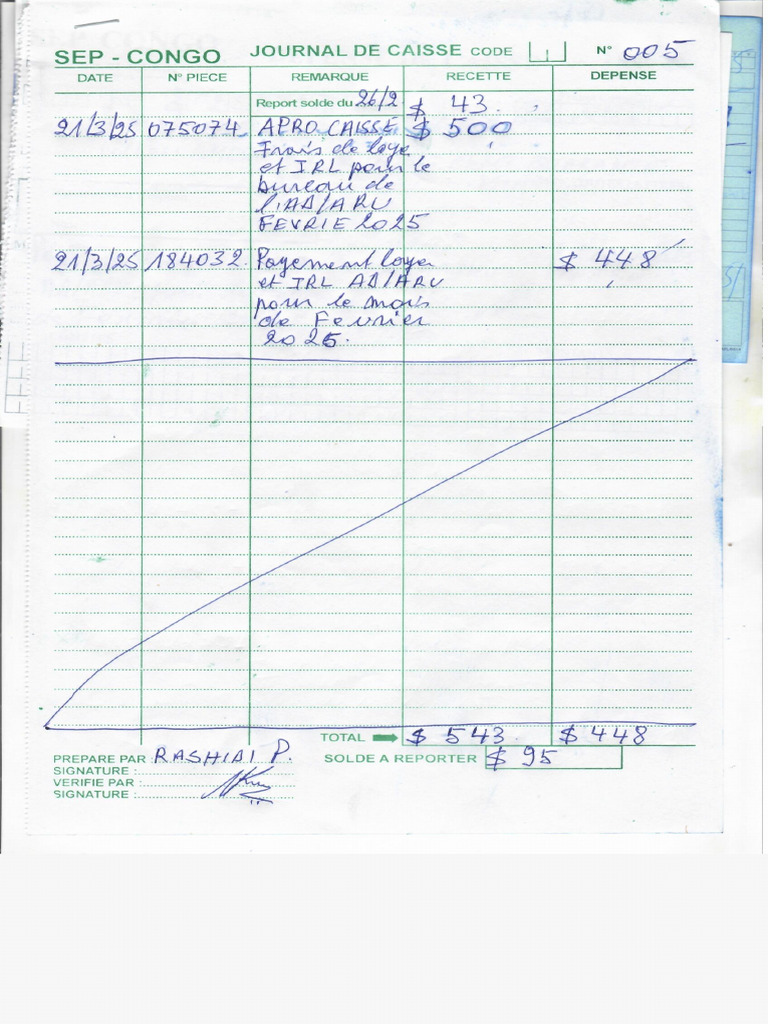 SEP - CONGO JOURNAL DE CAISSE CODE N° 005
DATE N° PIECE REMARQUE RECETTE DEPENSE
Report solde du 26/2 $ 43
21/3/25 075074 APRO CAISSE $ 500
Frais de loye
et IRL pour le
bureau de
l'AD/ARU
FEVRIE 2025
21/3/25 184032 Payement loyer $ 448
et IRL AD/ARU
pour le mois
de Fevrier
2025.
TOTAL $ 543 $ 448
PREPARE PAR : RASHIDI P. SOLDE A REPORTER $ 95
SIGNATURE :
VERIFIE PAR :
SIGNATURE :